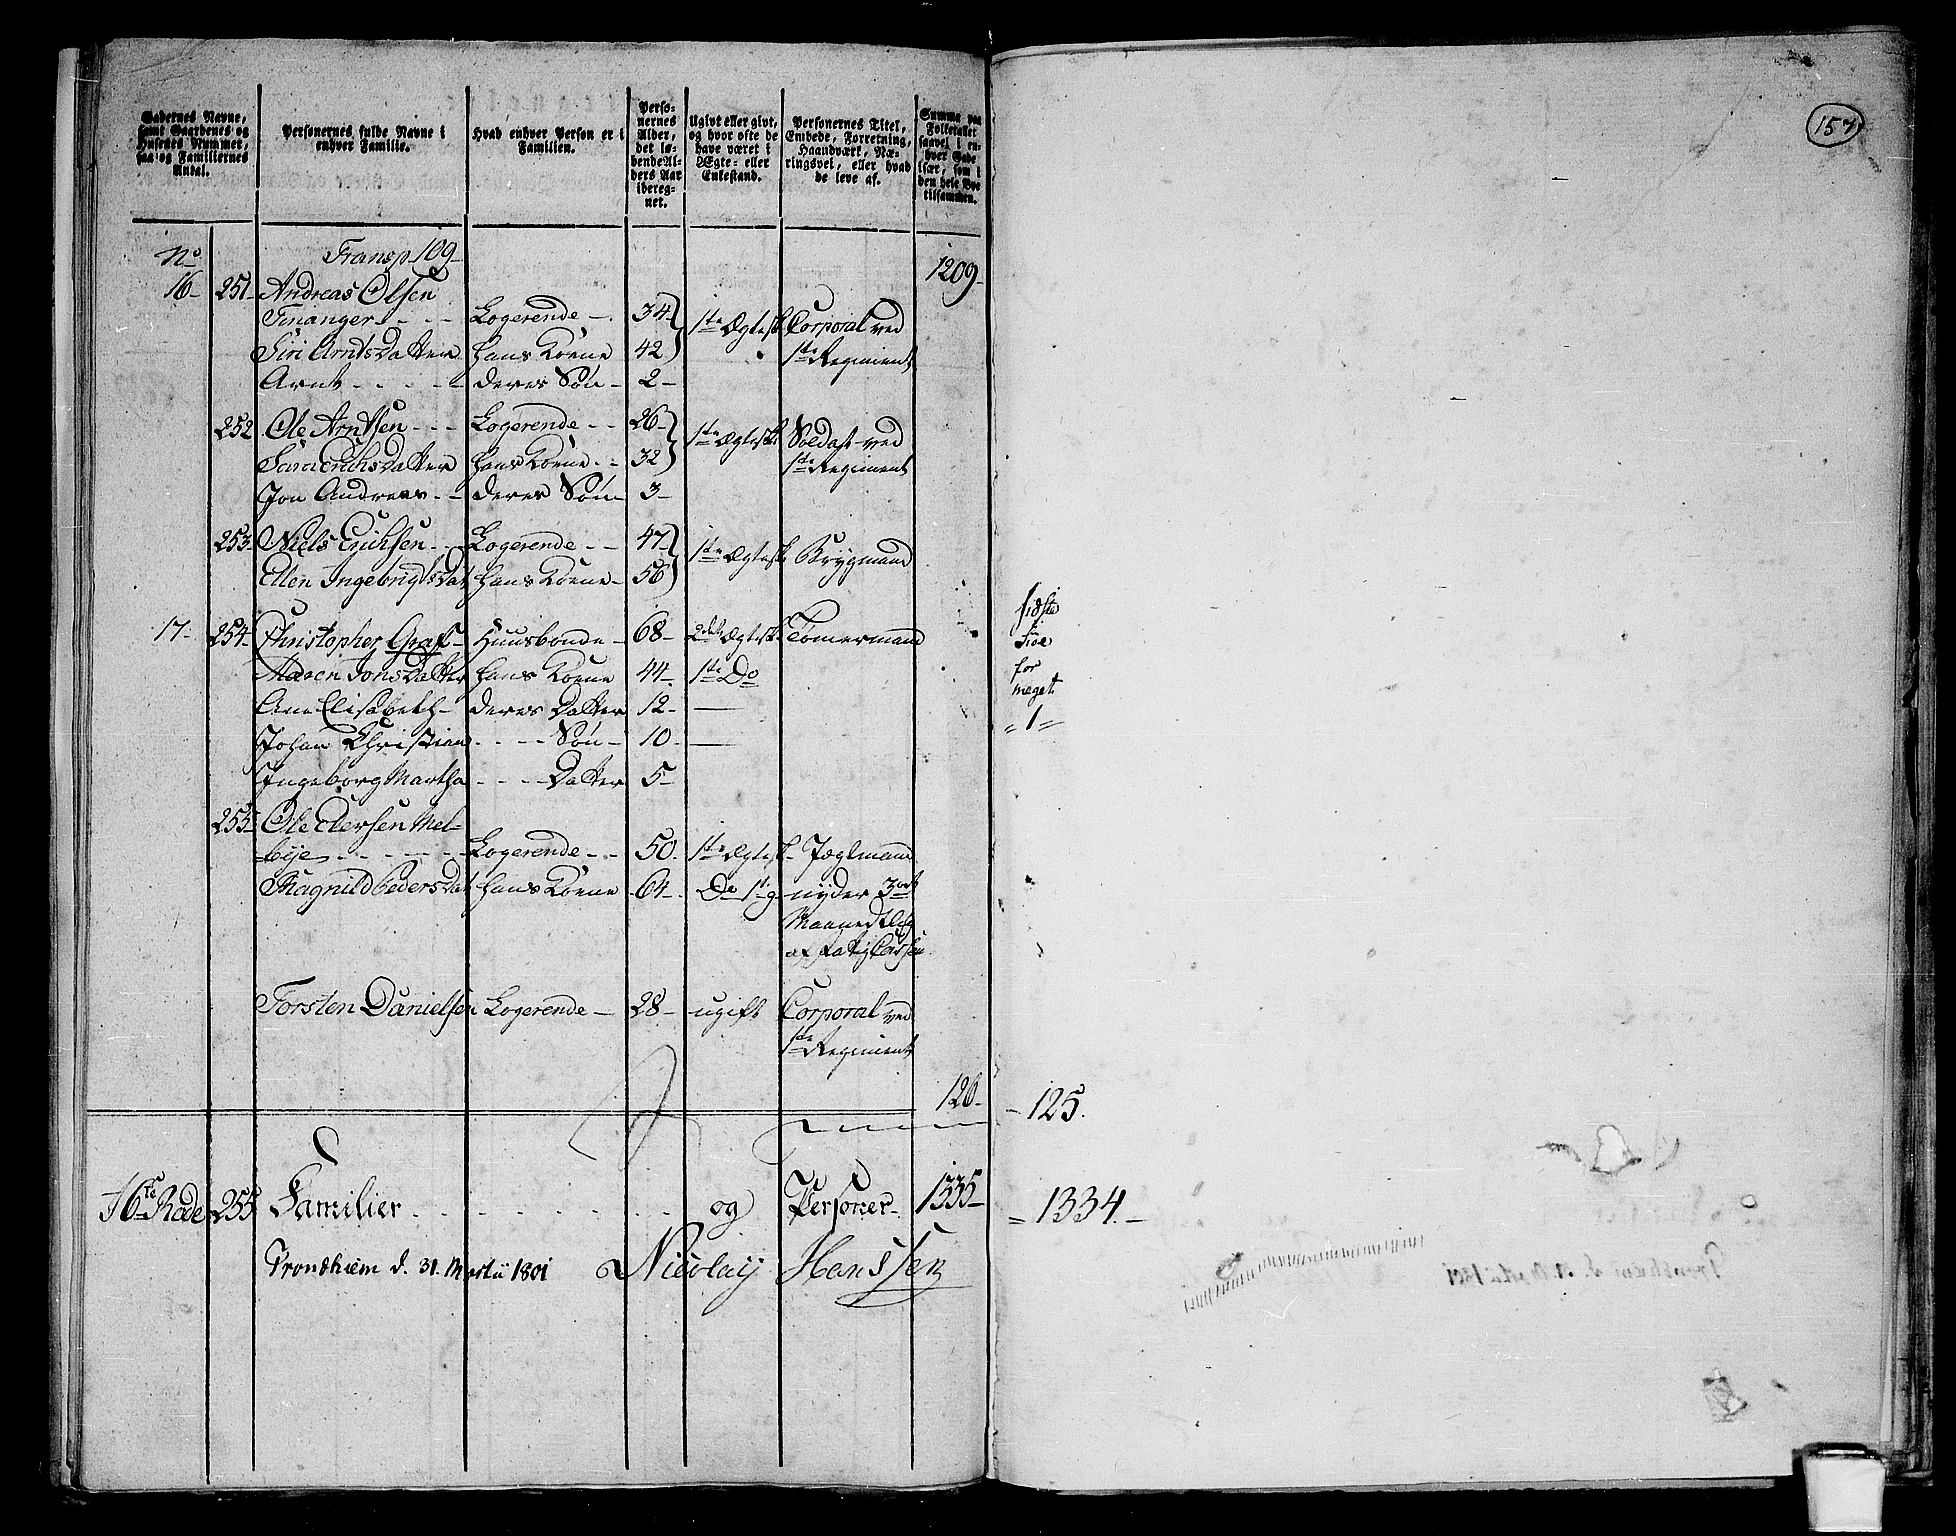 Gadernes Navne, samt Gaardenes og Husenes Nummer, saa og Familiernes Antal.
Personernes fulde Navne i enhver Familie.
Hvad enhver Person er i Familien.
Personernes Alder, det løbende Alders Aar iberegnet.
Ugivt eller givt, og hvor ofte de have været i Ægte- eller Enkestand.
Personernes Titel, Embede, Forretning, Haandværk, Næringsvei, eller hvad de leve af.
Summa paa Folketallet saavel i enhver Gade især, som i den hele Bye tilsammen.
157
No Transp. 109- 1209-
16- 251- Andreas Olsen
- - - Logerende - 34 1ste Ægtesk. Corporal ved
Siri Arnts Datter hans Kone 42 1ste Regiment
Arnt - - - deres Søn - 2-
252 Ole Arntsen - - - Logerende - - 26- 1ste Ægtesk. Soldat ved
Sara Erichs Datter hans Kone - - 32 1ste Regiment
Jon Andreas - - deres Søn 3-
253- Niels Erichsen - - Logerende - - 47- 1ste Ægtesk. Brygmand
Elen Ingebrigts Dat hans Kone - 56
17- 254- Christopher Graf - Huusbonde - 68- 2det Ægtesk. Tømermand
Maren Jons Datter hans Kone 44- 1ste Do
Ane Elisabeth - deres Datter 12- —
Johan Christian - - - Søn - 10- —
Ingeborg Martha - - - Datter 5-
255- Ole Edersen Mel-
bye - - - - - Logerende - - 50- 1ste Ægtesk. Jægtmand
Magnild Peders Dat hans Kone 64- Do 1st g nyder 3 ort
Maanedtlig
af Fattig Cassen
Torsten Danielsen Logerende - 28- ugift Corporal ved
1ste Regiment
sidste
Siøe
for
meget
"1"
126- - 125.
16te Rode 255 Familier - - - - - og Personer 1335- = 1334.-
Trondhiem d. 31. Martii 1801 Nicolay Hanssen